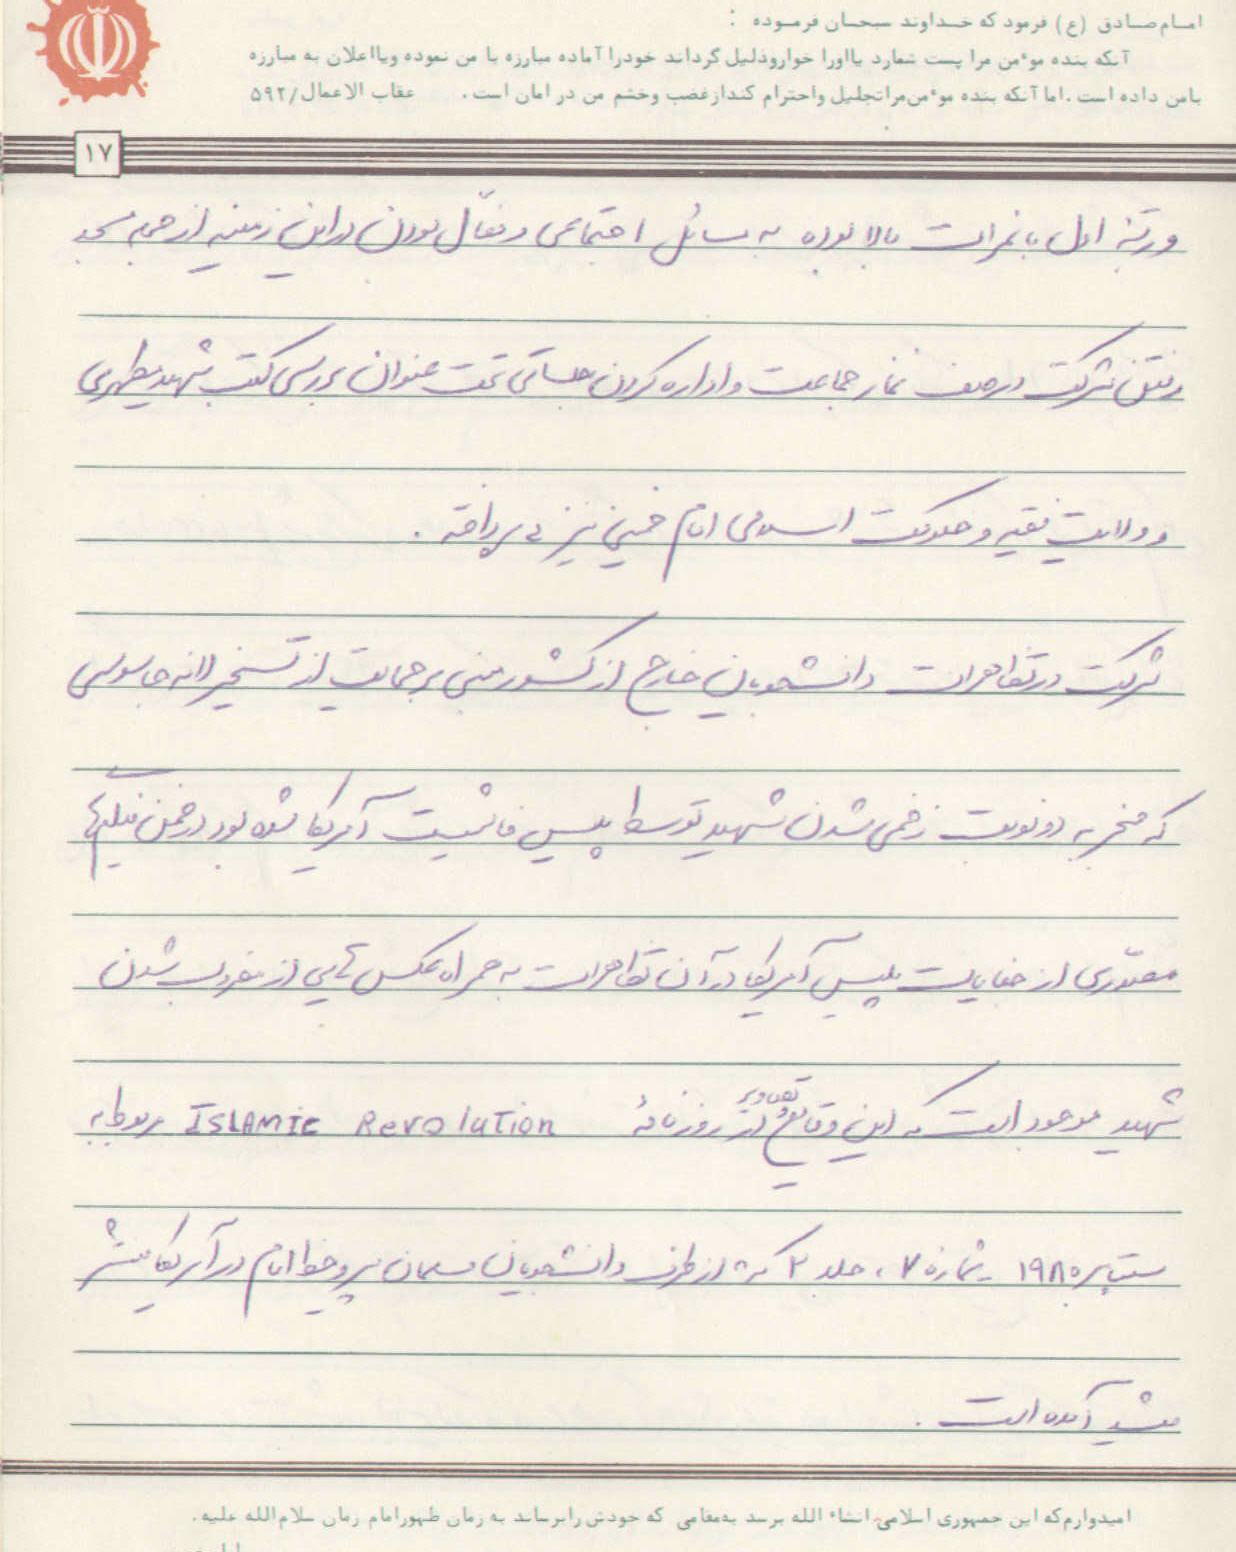 امام صادق (ع) فرمود که خداوند سبحان فرموده :
آنکه بنده موءمن مرا پست شمارد یا اورا خوار وذلیل گرداند خودرا آماده مبارزه با من نموده ویا اعلان به مبارزه
بامن داده است . اما آنکه بنده موءمن مرا تجلیل واحترام کند از غضب وخشم من در امان است . عقاب الاعمال/۵۹۲
۱۷
ورتبه اول با نمرات بالا بوده به مسائل اجتماعی و فعّال بودن در این زمینه از جمله مسجد
رفتن شرکت در صف نماز جماعت و اداره کردن جلساتی تحت عنوان بررسی کتب شهید مطهری
و ولایت فقیه و حکومت اسلامی امام خمینی نیز می پرداخته .
شرکت در تظاهرات دانشجویان خارج از کشور مبنی بر حمایت از تسخیر لانه جاسوسی
که منجر به دو نوبت زخمی شدن شهید توسط پلیس فاشیست آمریکا شده بود در ضمن فیلمهای
مصوّری از جنایات پلیس آمریکا در آن تظاهرات به همراه عکس هایی از مضروب شدن
شهید موجود است که این وقایع و تصاویر از روزنامهٔ ISLAMIC Revolution مربوط به
سپتامبر ۱۹۸۰ شماره ۷ ، جلد ۲ که از طرف دانشجویان مسلمان پیرو خط امام در آمریکا منتشر
میشد آمده است .
امیدوارم که این جمهوری اسلامی انشاء الله برسد به مقامی که خودش را برساند به زمان ظهور امام زمان سلام الله علیه .